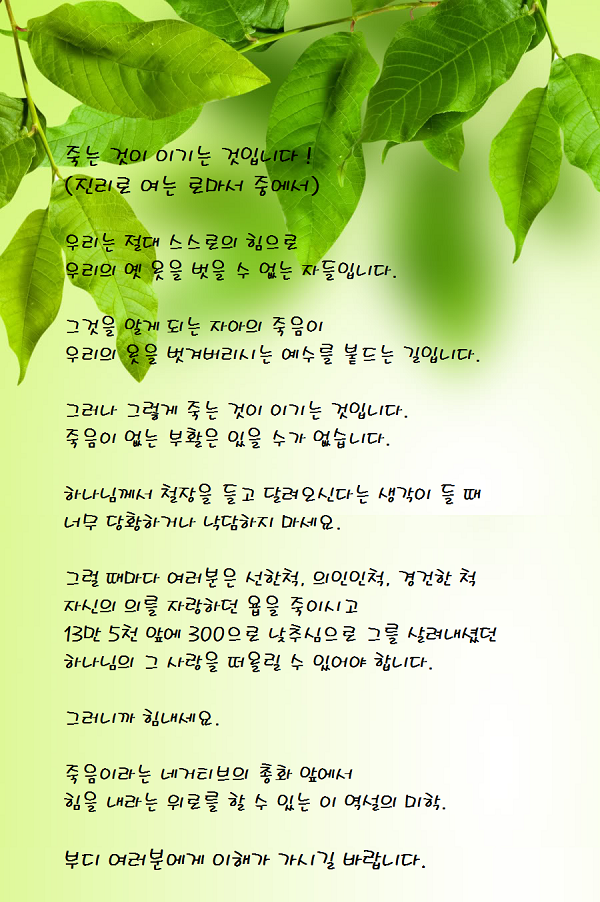 죽는 것이 이기는 것입니다 !
(진리로 여는 로마서 중에서)
우리는 절대 스스로의 힘으로
우리의 옛 옷을 벗을 수 없는 자들입니다.
그것을 알게 되는 자아의 죽음이
우리의 옷을 벗겨버리시는 예수를 붙드는 길입니다.
그러나 그렇게 죽는 것이 이기는 것입니다.
죽음이 없는 부활은 있을 수가 없습니다.
하나님께서 철장을 들고 달려오신다는 생각이 들 때
너무 당황하거나 낙담하지 마세요.
그럴 때마다 여러분은 선한척, 의인인척, 경건한 척
자신의 의를 자랑하던 욥을 죽이시고
13만 5천 앞에 300으로 낮추심으로 그를 살려내셨던
하나님의 그 사랑을 떠올릴 수 있어야 합니다.
그러니까 힘내세요.
죽음이라는 네거티브의 총화 앞에서
힘을 내라는 위로를 할 수 있는 이 역설의 미학.
부디 여러분에게 이해가 가시길 바랍니다.